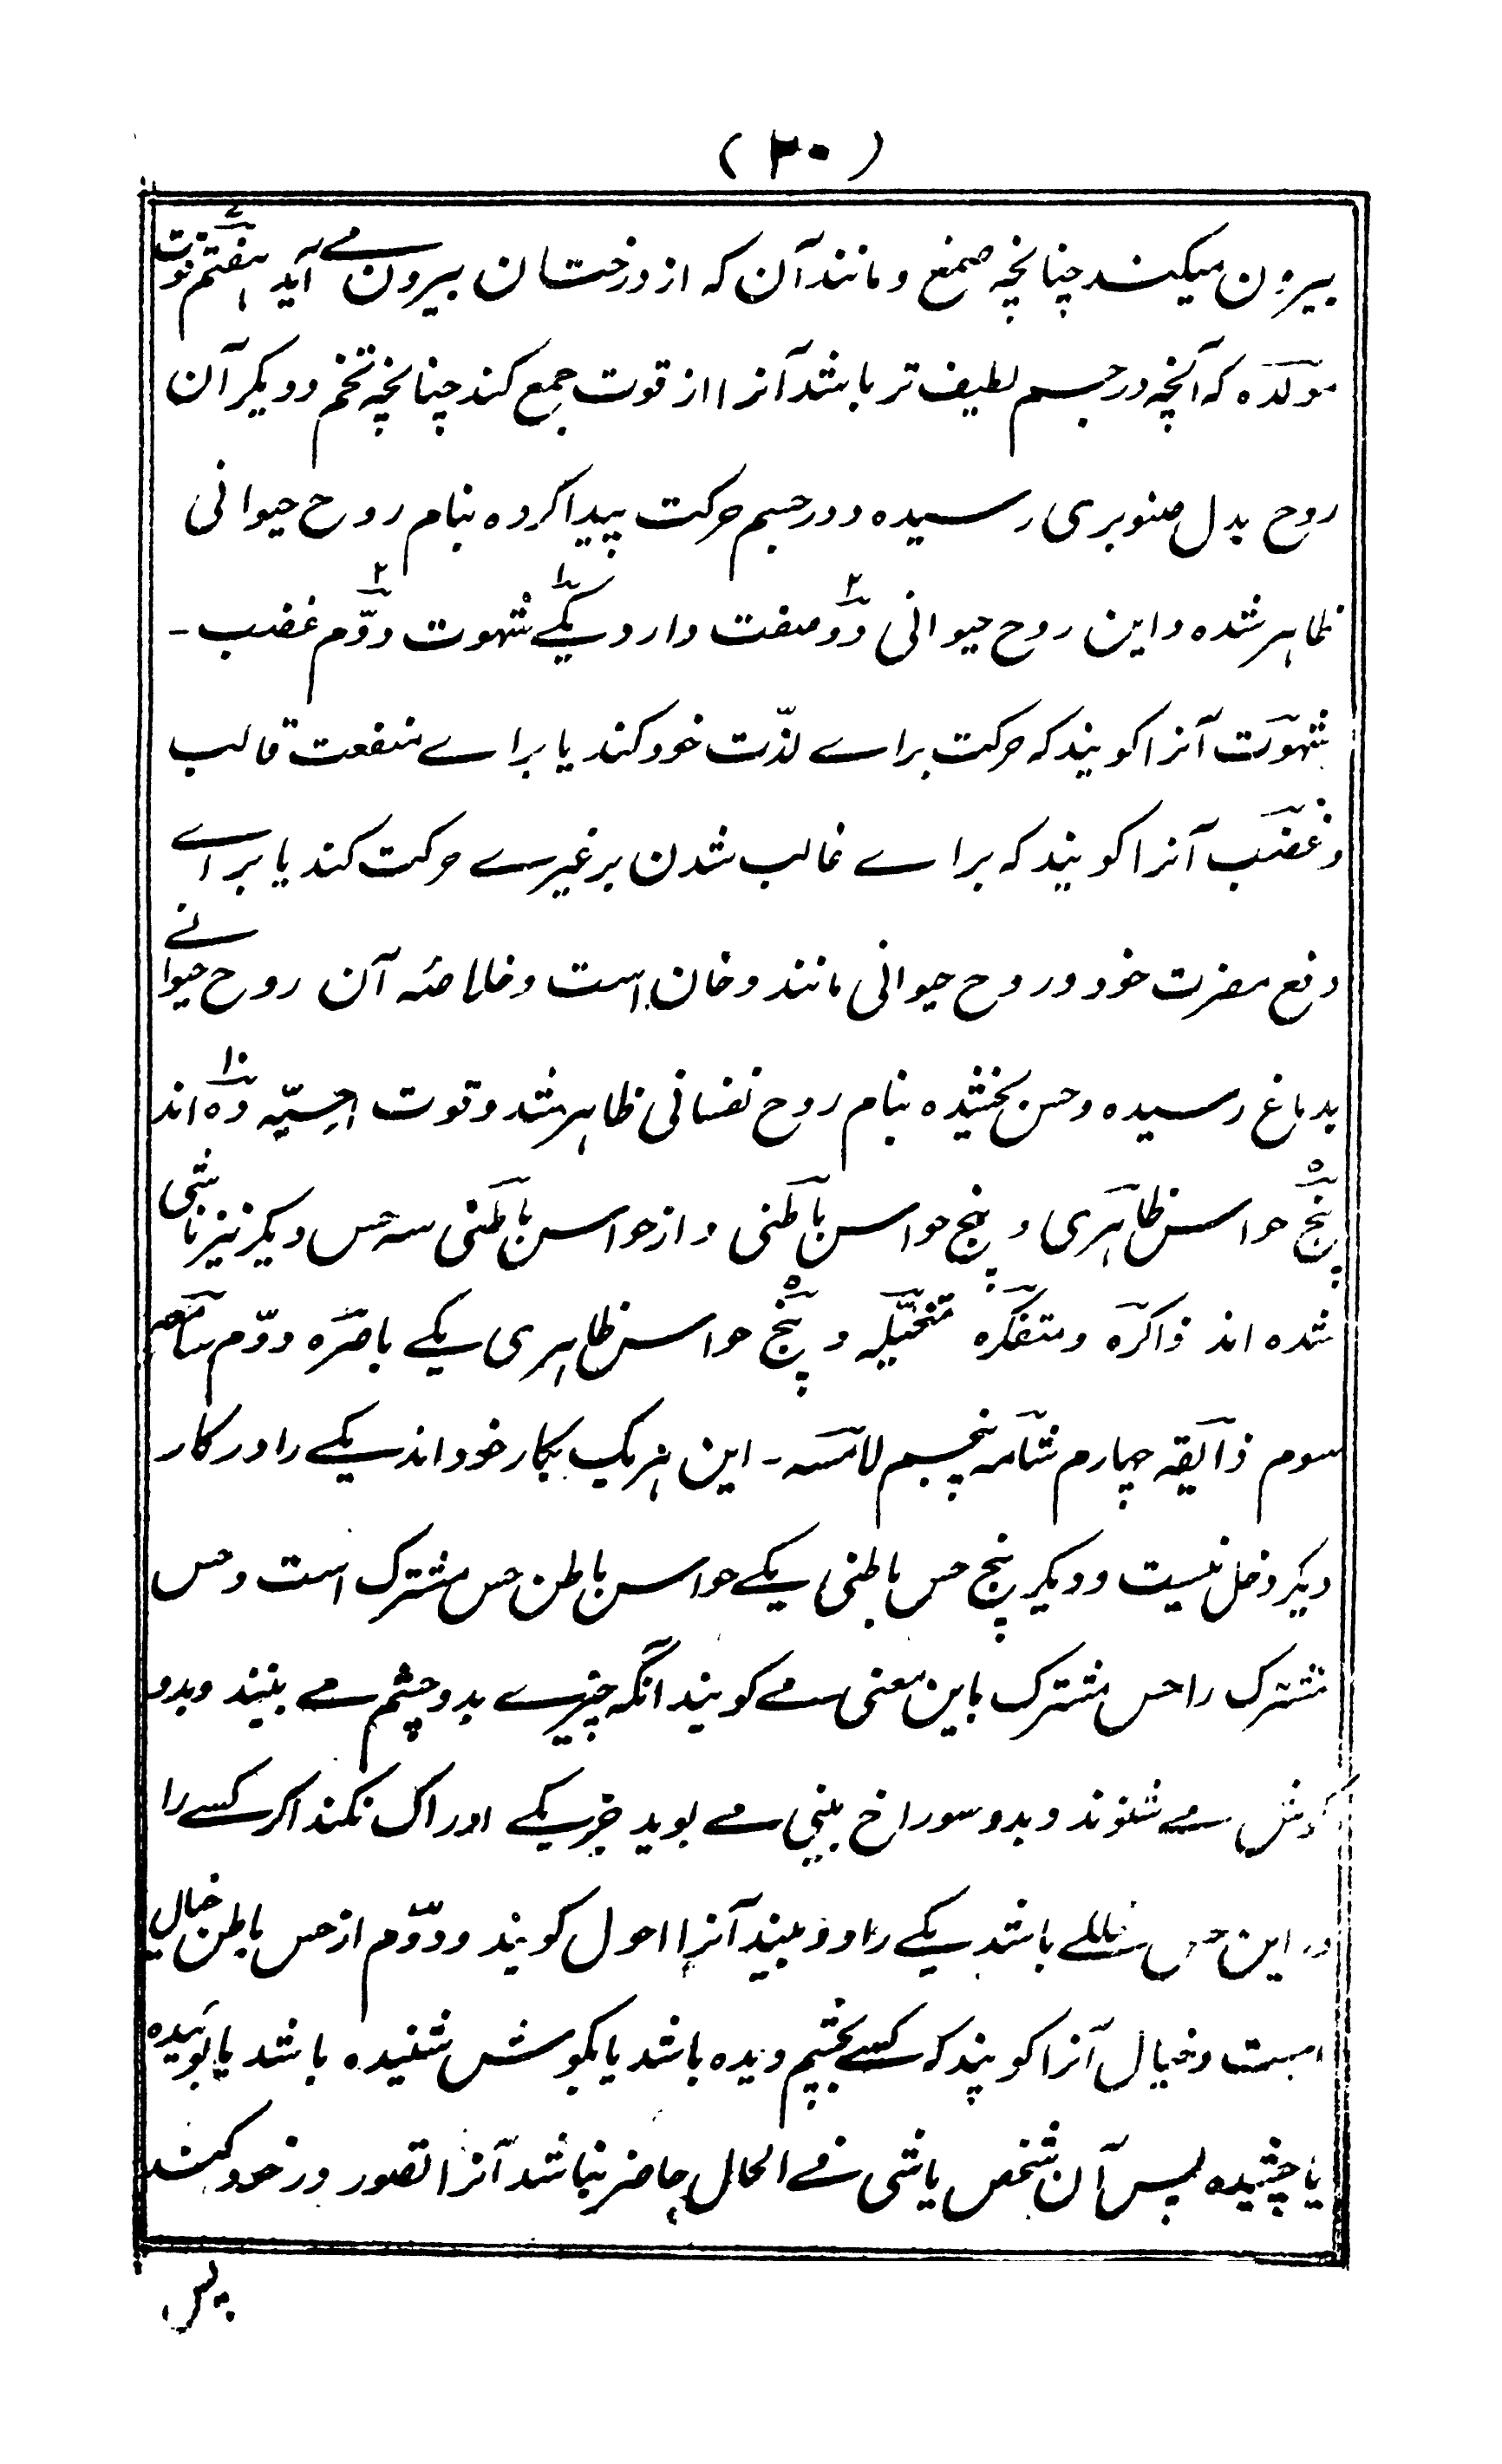 (۳۰)
بیرون میکند چنانچه صمغ و مانند آن که از درختان بیرون مے آید ہفتم قوت
مولدہ که آنچه در جسم لطیف تر باشد آنرا از قوت جمع کند چنانچه تخم و دیگر آن
روح بدل صنوبری رسیدہ و در جسم حرکت پیدا کردہ بنام روح حیوانی
ظاہر شدہ و این روح حیوانی دو صفت دارد یکے شہوت دوّم غضب -
شہوت آنرا گویند که حرکت براے لذّت خود کند یا براے منفعت قالب
و غضب آنرا گویند که براے غالب شدن بر غیرے حرکت کند یا براے
دفع مضرت خود و روح حیوانی مانند دخان است و خلاصۂ آن روح حیوانے
بدماغ رسیدہ و حس بخشیدہ بنام روح نفسانی ظاہر شد و قوت حسیّہ دہ اند
پنج حواس ظاہری و پنج حواس باطنی و از حواس باطنی سه حس دیگر نیز ناشی
شدہ اند ذاکرہ و متفکرہ متخیّلہ و پنج حواس ظاہری یکے باصرہ دوّم سامعہ
سوم ذایقہ چہارم شامہ پنجم لامسہ - این ہر یک بکار خود اند یکے را در کار
دیگر دخل نیست و دیگر پنج حس باطنی یکے حواس باطن حس مشترک است و حس
مشترک را حس مشترک باین معنی مے گویند آنگہ چیزے بدو چشم مے بینند و بدو
گوش مے شنوند و بدو سوراخ بینی مے بوید جز یکے ادراک نکند اگر کسے را
در این حس خللے باشد یکے را دو بیند آنرا احول گویند و دوّم از حس باطن خیال
است و خیال آنرا گویند که کسے بچشم دیدہ باشد یا بگوش شنیدہ باشد یا بوئیدہ
یا چشیدہ پس آن شخص یا شی فے الحال حاضر نباشد آنرا تصور در خود کند
پس